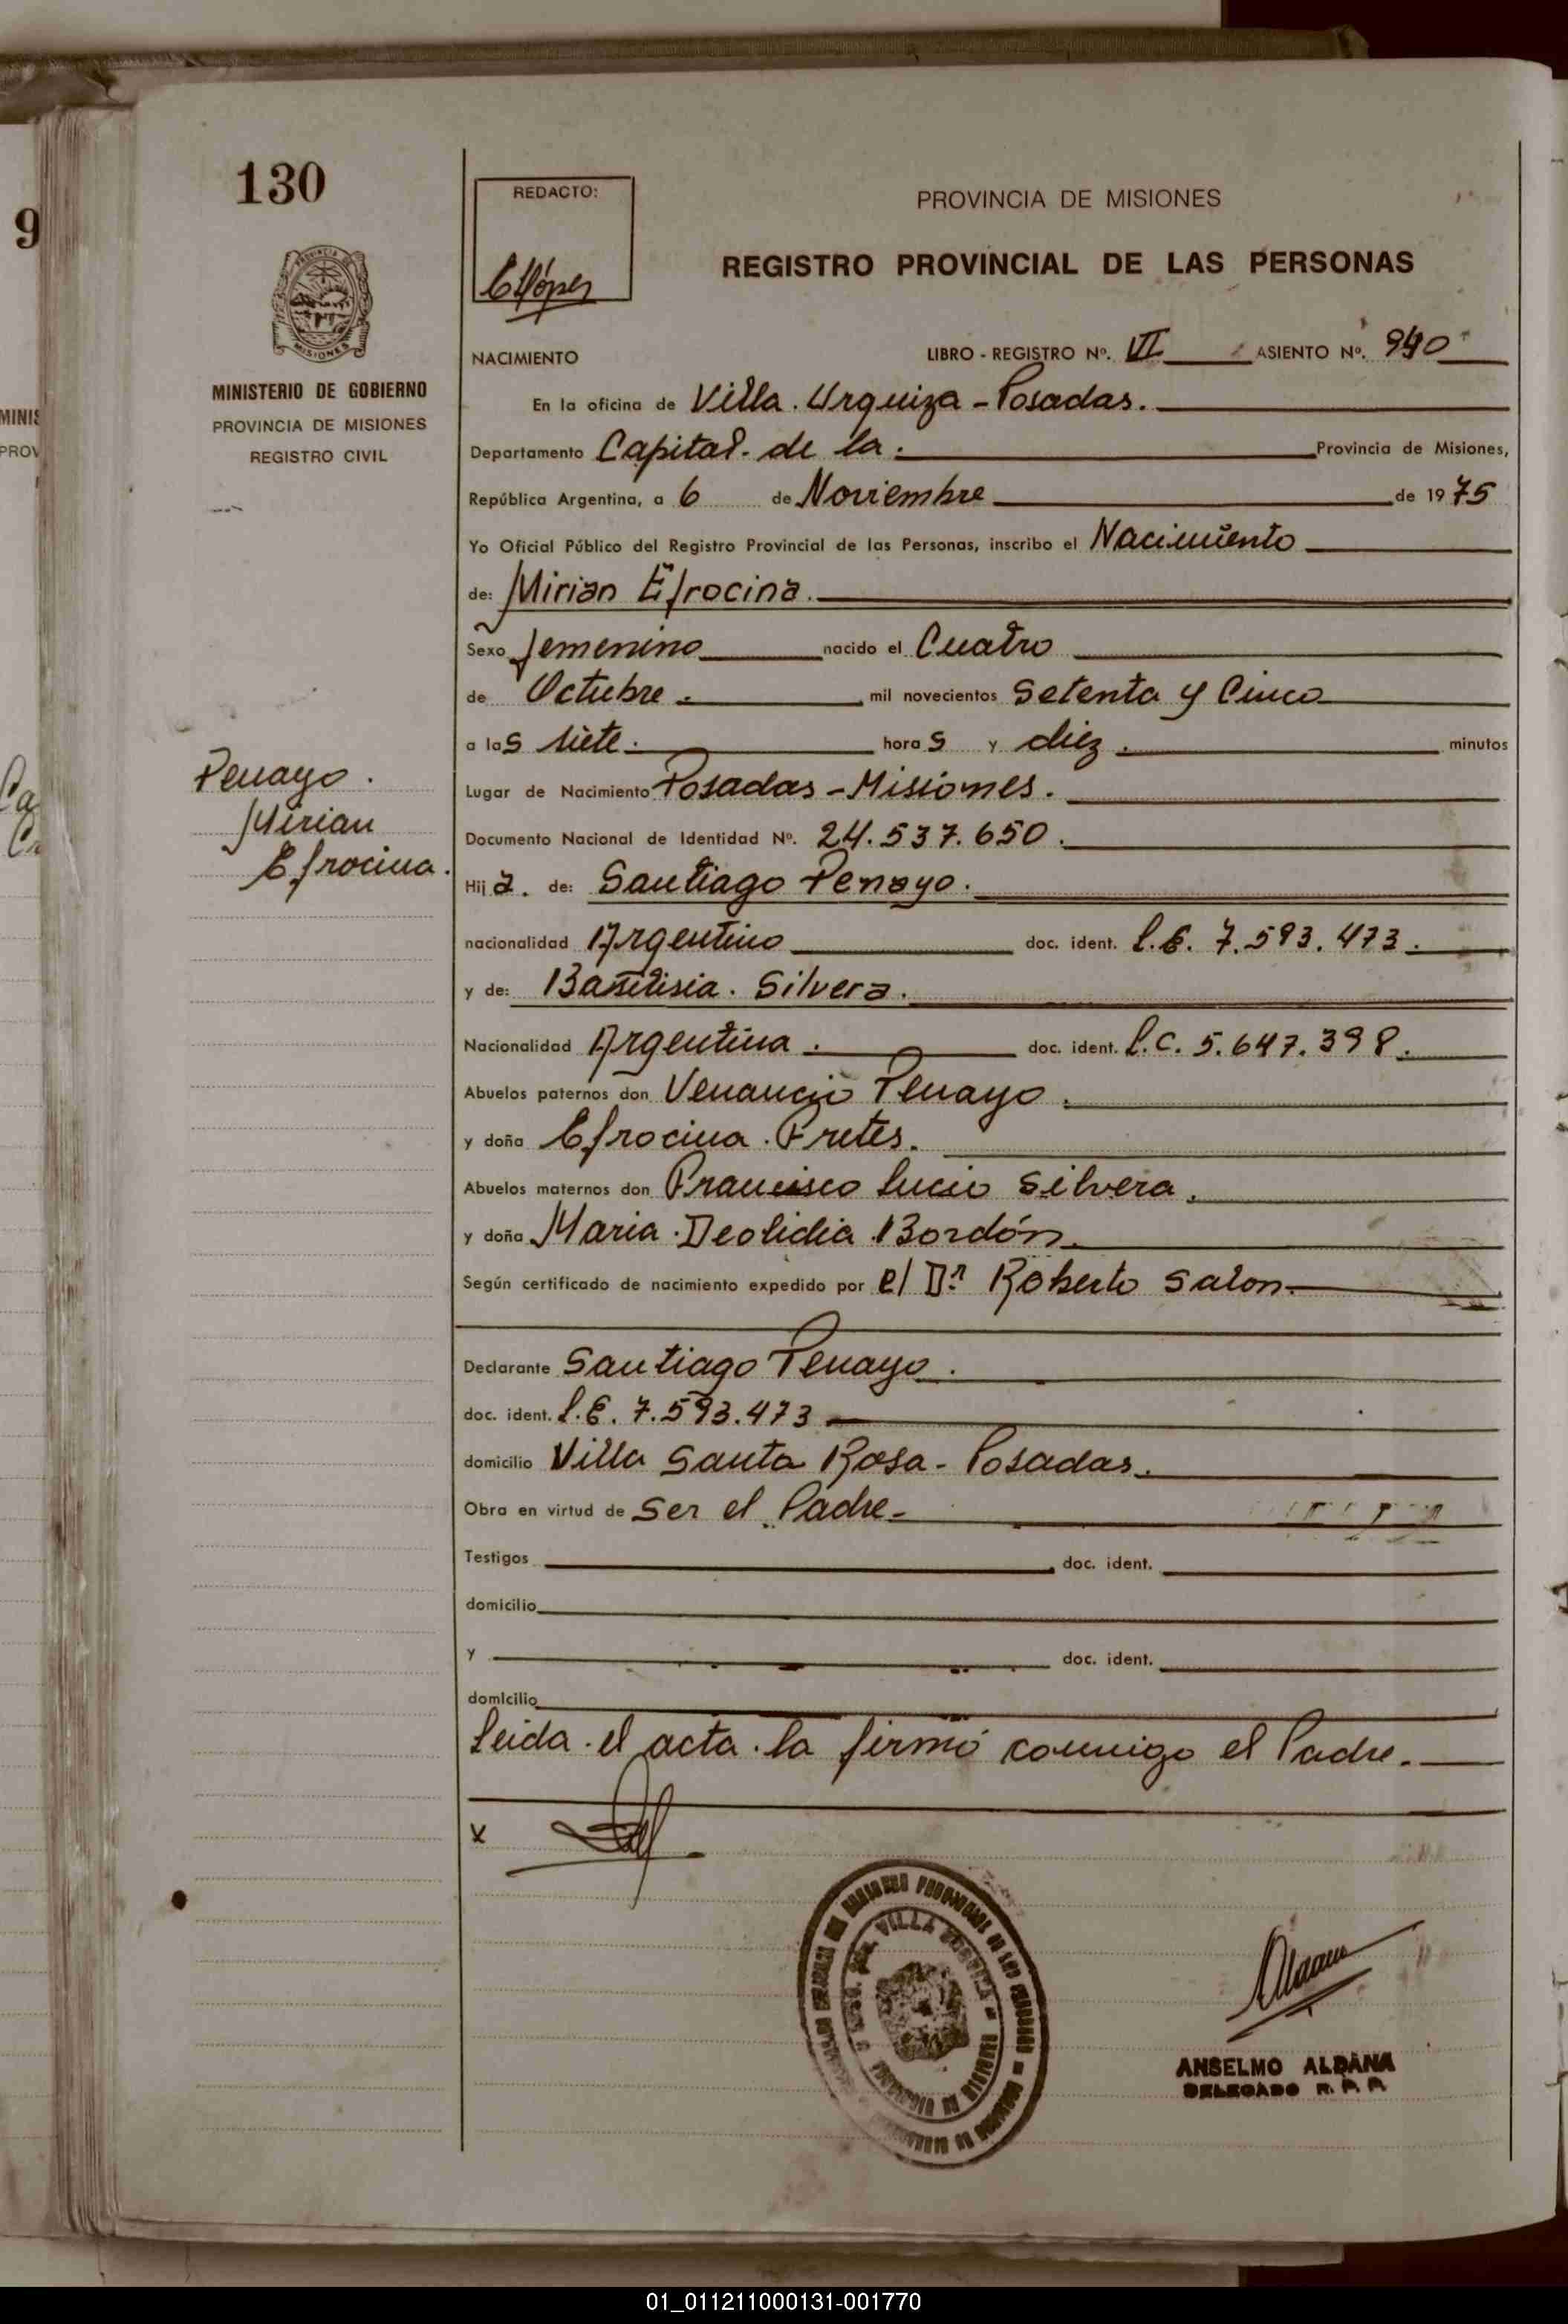 130
REDACTO:
CLópez
PROVINCIA DE MISIONES
REGISTRO PROVINCIAL DE LAS PERSONAS
MISIONES
MINISTERIO DE GOBIERNO
PROVINCIA DE MISIONES
REGISTRO CIVIL
NACIMIENTO LIBRO - REGISTRO Nº. VI ASIENTO Nº. 940
En la oficina de Villa. Urquiza - Posadas.
Departamento Capital. de la. Provincia de Misiones,
República Argentina, a 6 de Noviembre de 1975
Yo Oficial Público del Registro Provincial de las Personas, inscribo el Nacimiento
de: Mirian Efrocina.
Sexo femenino nacido el Cuatro
de Octubre. mil novecientos Setenta y Cinco
a las siete. horas y diez. minutos
Penayo.
Mirian
Efrocina.
Lugar de Nacimiento Posadas - Misiones.
Documento Nacional de Identidad Nº. 24.537.650.
Hija. de: Santiago Penayo.
nacionalidad Argentino doc. ident. L.E. 7.593.473.
y de: Silvera.
Nacionalidad Argentina. doc. ident. L.C. 5.647.398.
Abuelos paternos don Venancio Penayo.
y doña Efrocina. Fretes.
Abuelos maternos don Francisco Lucio Silvera.
y doña Maria. Deolidia. Bordón.
Según certificado de nacimiento expedido por el Dr. Roberto Salon.
Declarante Santiago Penayo.
doc. ident. L.E. 7.593.473
domicilio Villa Santa Rosa - Posadas.
Obra en virtud de Ser el Padre -
Testigos doc. ident.
domicilio
y doc. ident.
domicilio
Leida. el acta. la firmó conmigo el Padre.
x
VILLA
ANSELMO ALDANA
DELEGADO R. P. P.
01_011211000131-001770